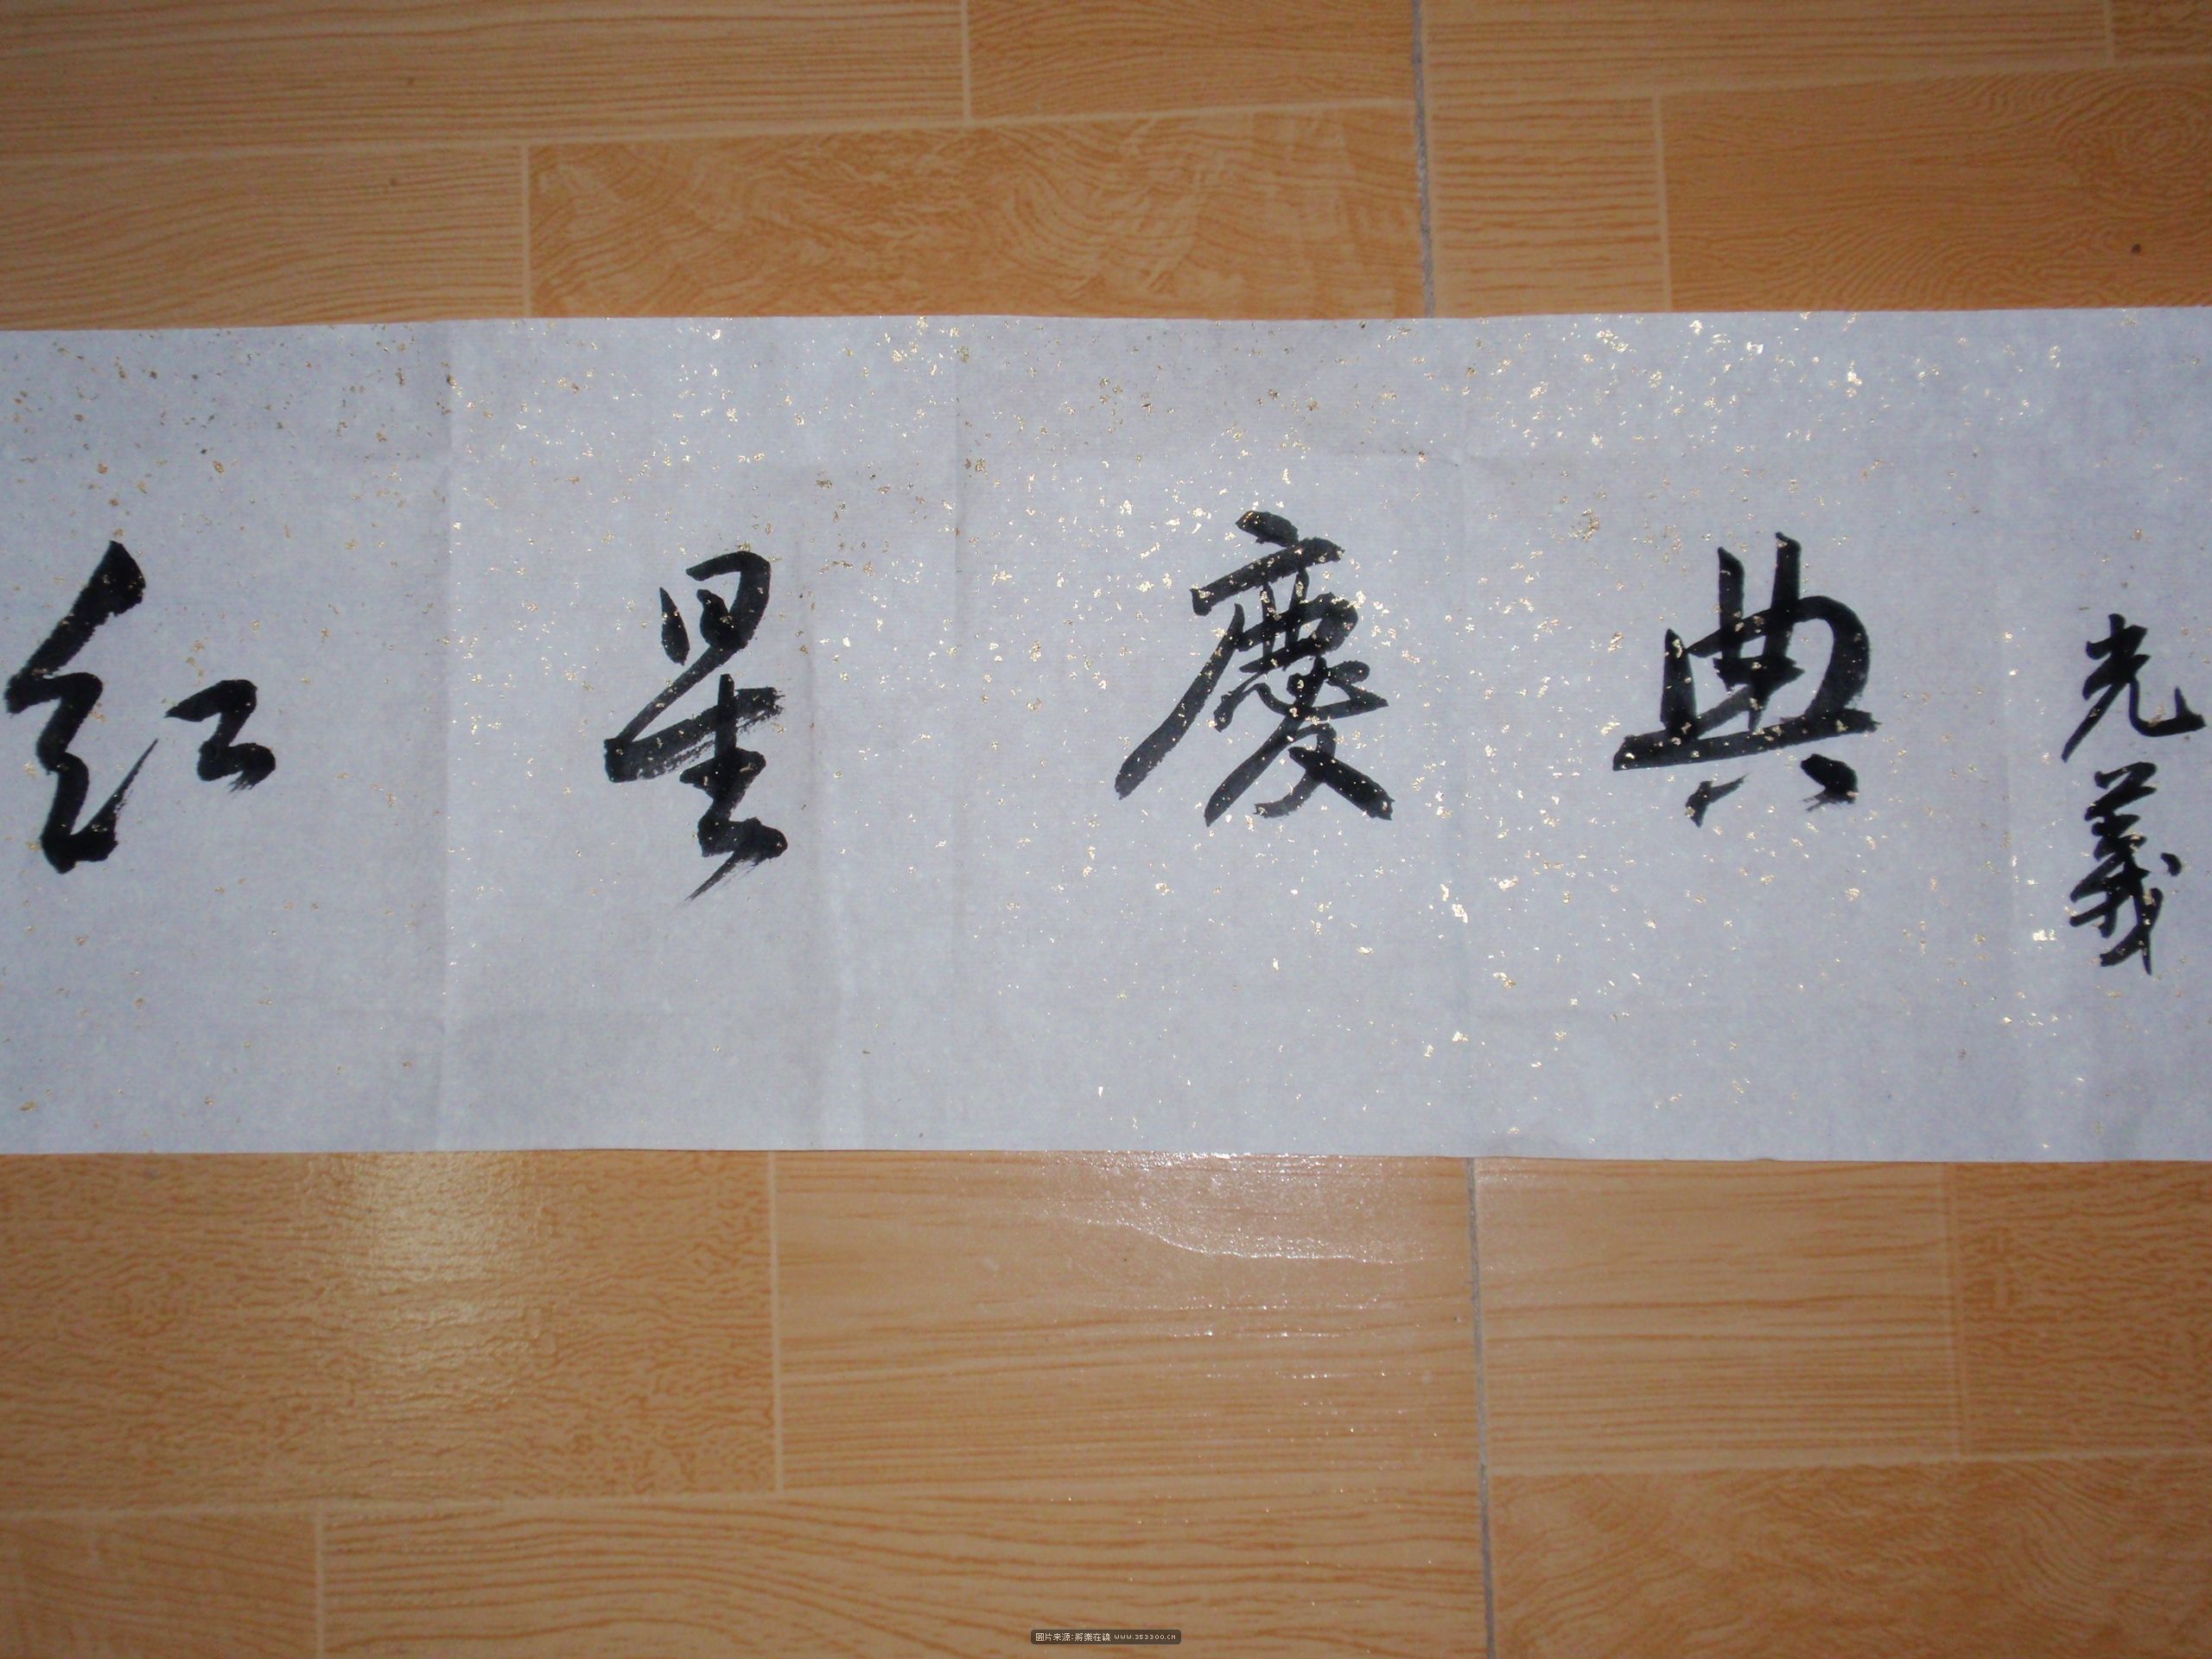 红星慶典
光義
圖片来源:將樂在線 www.353300.cn